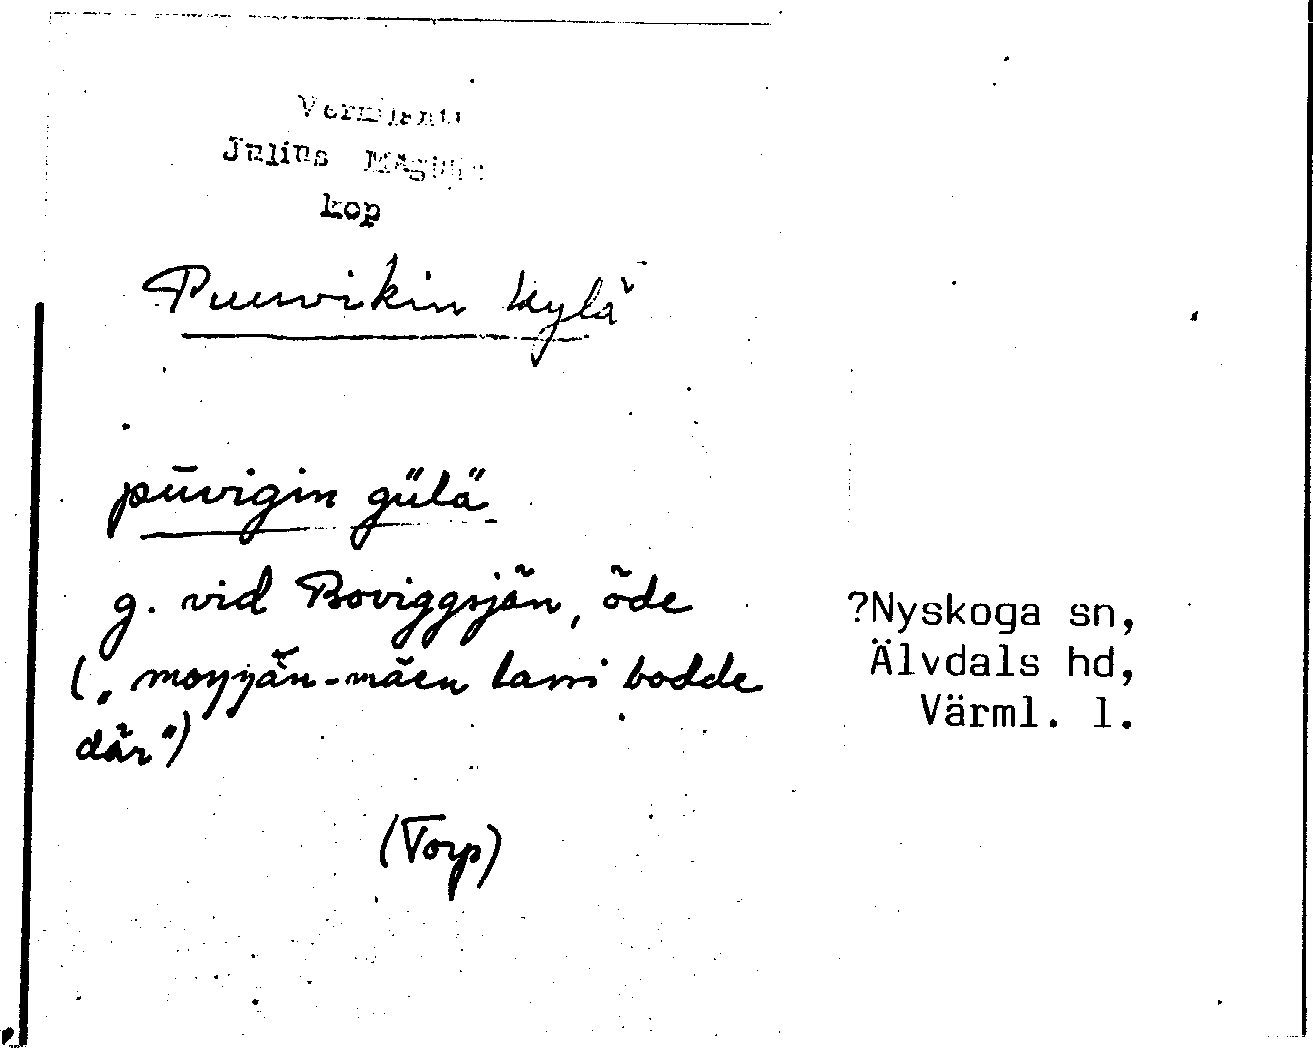 Vermlanti
Julius Mägiste
kop
Puuvikin kylä
pūvigin gülä
g. vid Boviggsjön, öde
(„moŋŋän-mäen lassi bodde
där")
(Torp)
?Nyskoga sn,
Älvdals hd,
Värml. l.